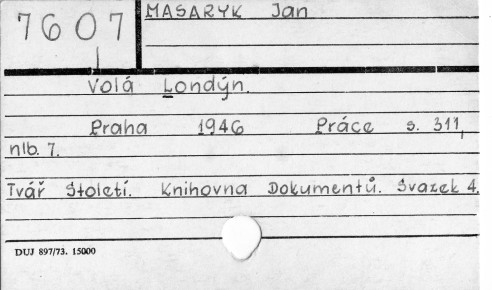 7607
MASARYK Jan
Volá Londýn.
Praha 1946 Práce s. 311,
nlb. 7.
Tvář Století. Knihovna Dokumentů. Svazek 4.
DUJ 897/73. 15000